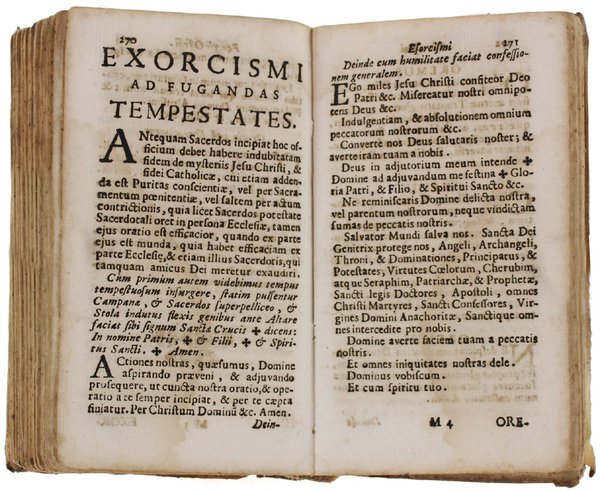 270
EXORCISMI
AD FUGANDAS
TEMPESTATES.
ANtequam Sacerdos incipiat hoc of-
ficium debet habere indubitatam
fidem de mysteriis Jesu Christi, &
fidei Catholicæ, cui etiam adden-
da est Puritas conscientiæ, vel per Sacra-
mentum pœnitentiæ, vel saltem per actum
contrictionis, quia licet Sacerdos potestate
Sacerdotali oret in persona Ecclesiæ, tamen
ejus oratio est efficacior, quando ex parte
ejus est munda, quia habet efficaciam ex
parte Ecclesię, & etiam illius Sacerdotis, qui
tamquam amicus Dei meretur exaudiri.
Cum primum autem videbimus tempus
tempestuosum insurgere, statim pulsentur
Campane, & Sacerdos superpelliceo, &
Stola indutus flexis genibus ante Altare
faciat sibi signum Sanctæ Crucis ✠ dicens:
In nomine Patris, ✠ & Filii, ✠ & Spiri-
tus Sancti. ✠ Amen.
ACtiones nostras, quæsumus, Domine
aspirando præveni, & adjuvando
prosequere, ut cuncta nostra oratio, & ope-
ratio a te semper incipiat, & per te cœpta
finiatur. Per Christum Dominū &c. Amen.
Dein-
Esorcismi 271
Deinde cum humilitate faciat confessio-
nem generalem.
EGo miles Jesu Christi confiteor Deo
Patri &c. Misereatur nostri omnipo-
tens Deus &c.
Indulgentiam, & absolutionem omnium
peccatorum nostrorum &c.
Converte nos Deus salutaris noster; &
averte iram tuam a nobis.
Deus in adjutorium meum intende ✠
Domine ad adjuvandum me festina ✠ Glo-
ria Patri, & Filio, & Spiritui Sancto &c.
Ne reminiscaris Domine delicta nostra,
vel parentum nostrorum, neque vindictam
sumas de peccatis nostris.
Salvator Mundi salva nos. Sancta Dei
Genitrix protege nos, Angeli, Archangeli,
Throni, & Dominationes, Principatus, &
Potestates, Virtutes Cœlorum, Cherubim,
atque Seraphim, Patriarchæ, & Prophetæ,
Sancti legis Doctores, Apostoli, omnes
Christi Martyres, Sancti Confessores, Vir-
gines Domini Anachoritæ, Sanctique om-
nes intercedite pro nobis.
Domine averte faciem tuam a peccatis
nostris.
Et omnes iniquitates nostras dele.
Dominus vobiscum.
Et cum spiritu tuo.
M 4 ORE-